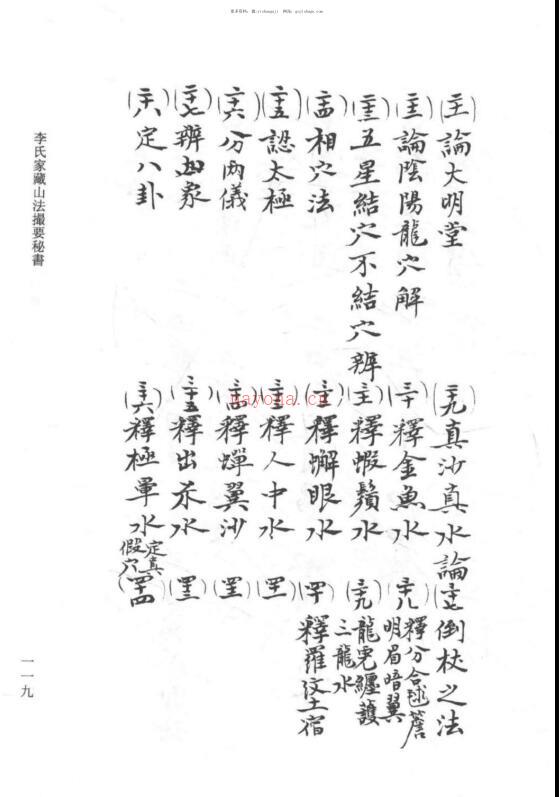 (二十一)論大明堂
(二十二)論陰陽龍穴解
(二十三)五星結穴不結穴辨
(二十四)相穴法
(二十五)認太極
(二十六)分兩儀
(二十七)辨四象
(二十八)定八卦
(二十九)真沙真水論
(三十)釋金魚水
(三十一)釋蝦鬚水
(三十二)釋蠏眼水
(三十三)釋人中水
(三十四)釋蟬翼沙
(三十五)釋出尒水
(三十六)釋極暈水定真假穴
(三十七)倒杖之法
(三十八)釋分合毬簷明眉暗翼
(三十九)龍虎纏護三龍水
(四十)釋羅紋土宿
(四十一)
(四十二)
(四十三)
(四十四)
李氏家藏山法撮要秘書
一一九
nayona.cn